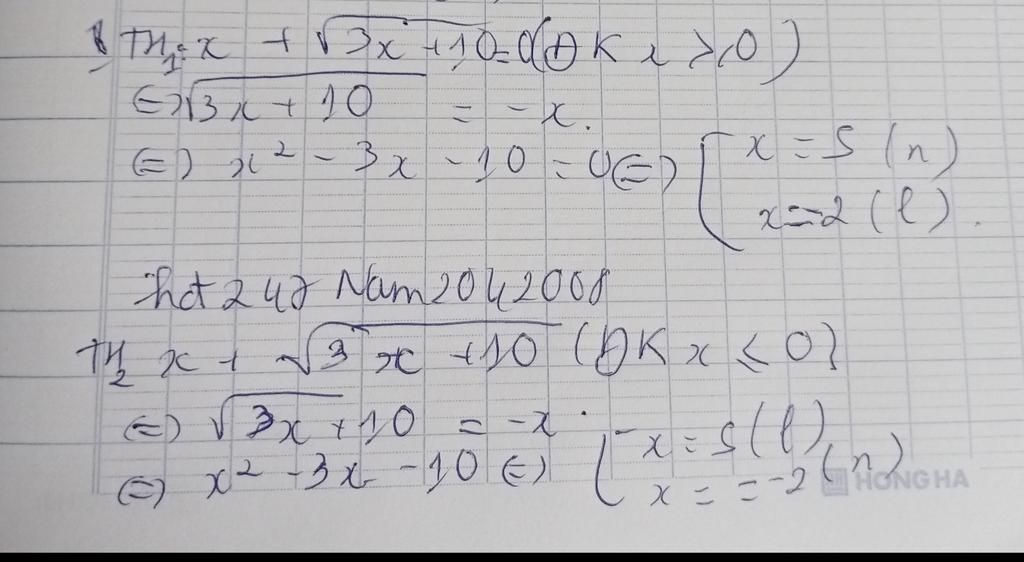 TH1: x + √3x+10=0(ĐK x ≥ 0)
⇔ √3x+10 = -x.
⇔ x² - 3x - 10 = 0 ⇔ [ x = 5 (n)
x=2 (l).
Nam2042008
TH2 x + √3x+10 (ĐK x ≤ 0)
⇔ √3x+10 = -x.
⇔ x² - 3x - 10 ⇔ [ x = 5 (l)
x = = -2 (n)
HONG HA